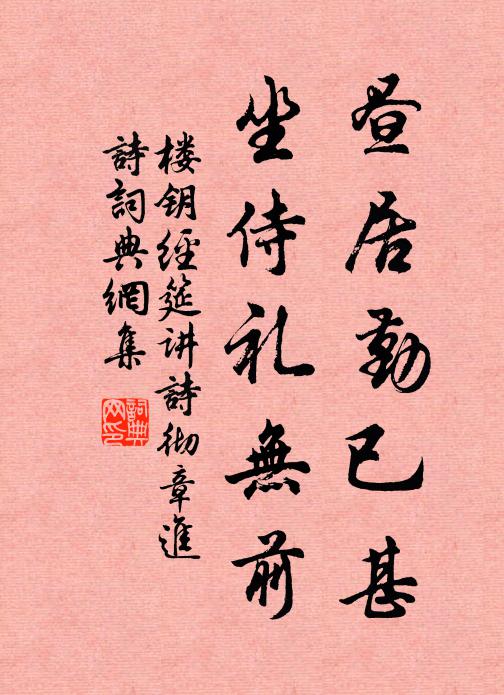 昼居勤已甚
坐侍礼無前
楼钥經筵讲詩彻章進
詩詞典網集
詞典网印